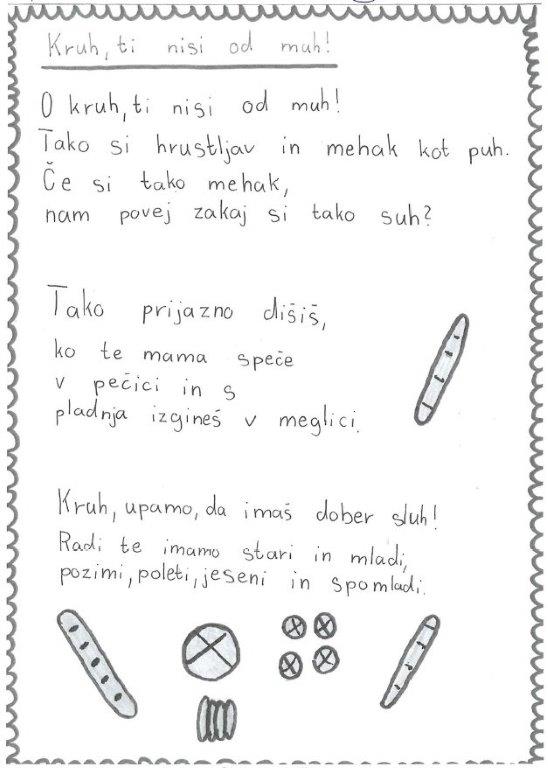 Kruh, ti nisi od muh!
O kruh, ti nisi od muh!
Tako si hrustljav in mehak kot puh.
Če si tako mehak,
nam povej zakaj si tako suh?
Tako prijazno dišiš,
ko te mama speče
v pečici in s
pladnja izgineš v meglici.
Kruh, upamo, da imaš dober sluh!
Radi te imamo stari in mladi,
pozimi, poleti, jeseni in spomladi.